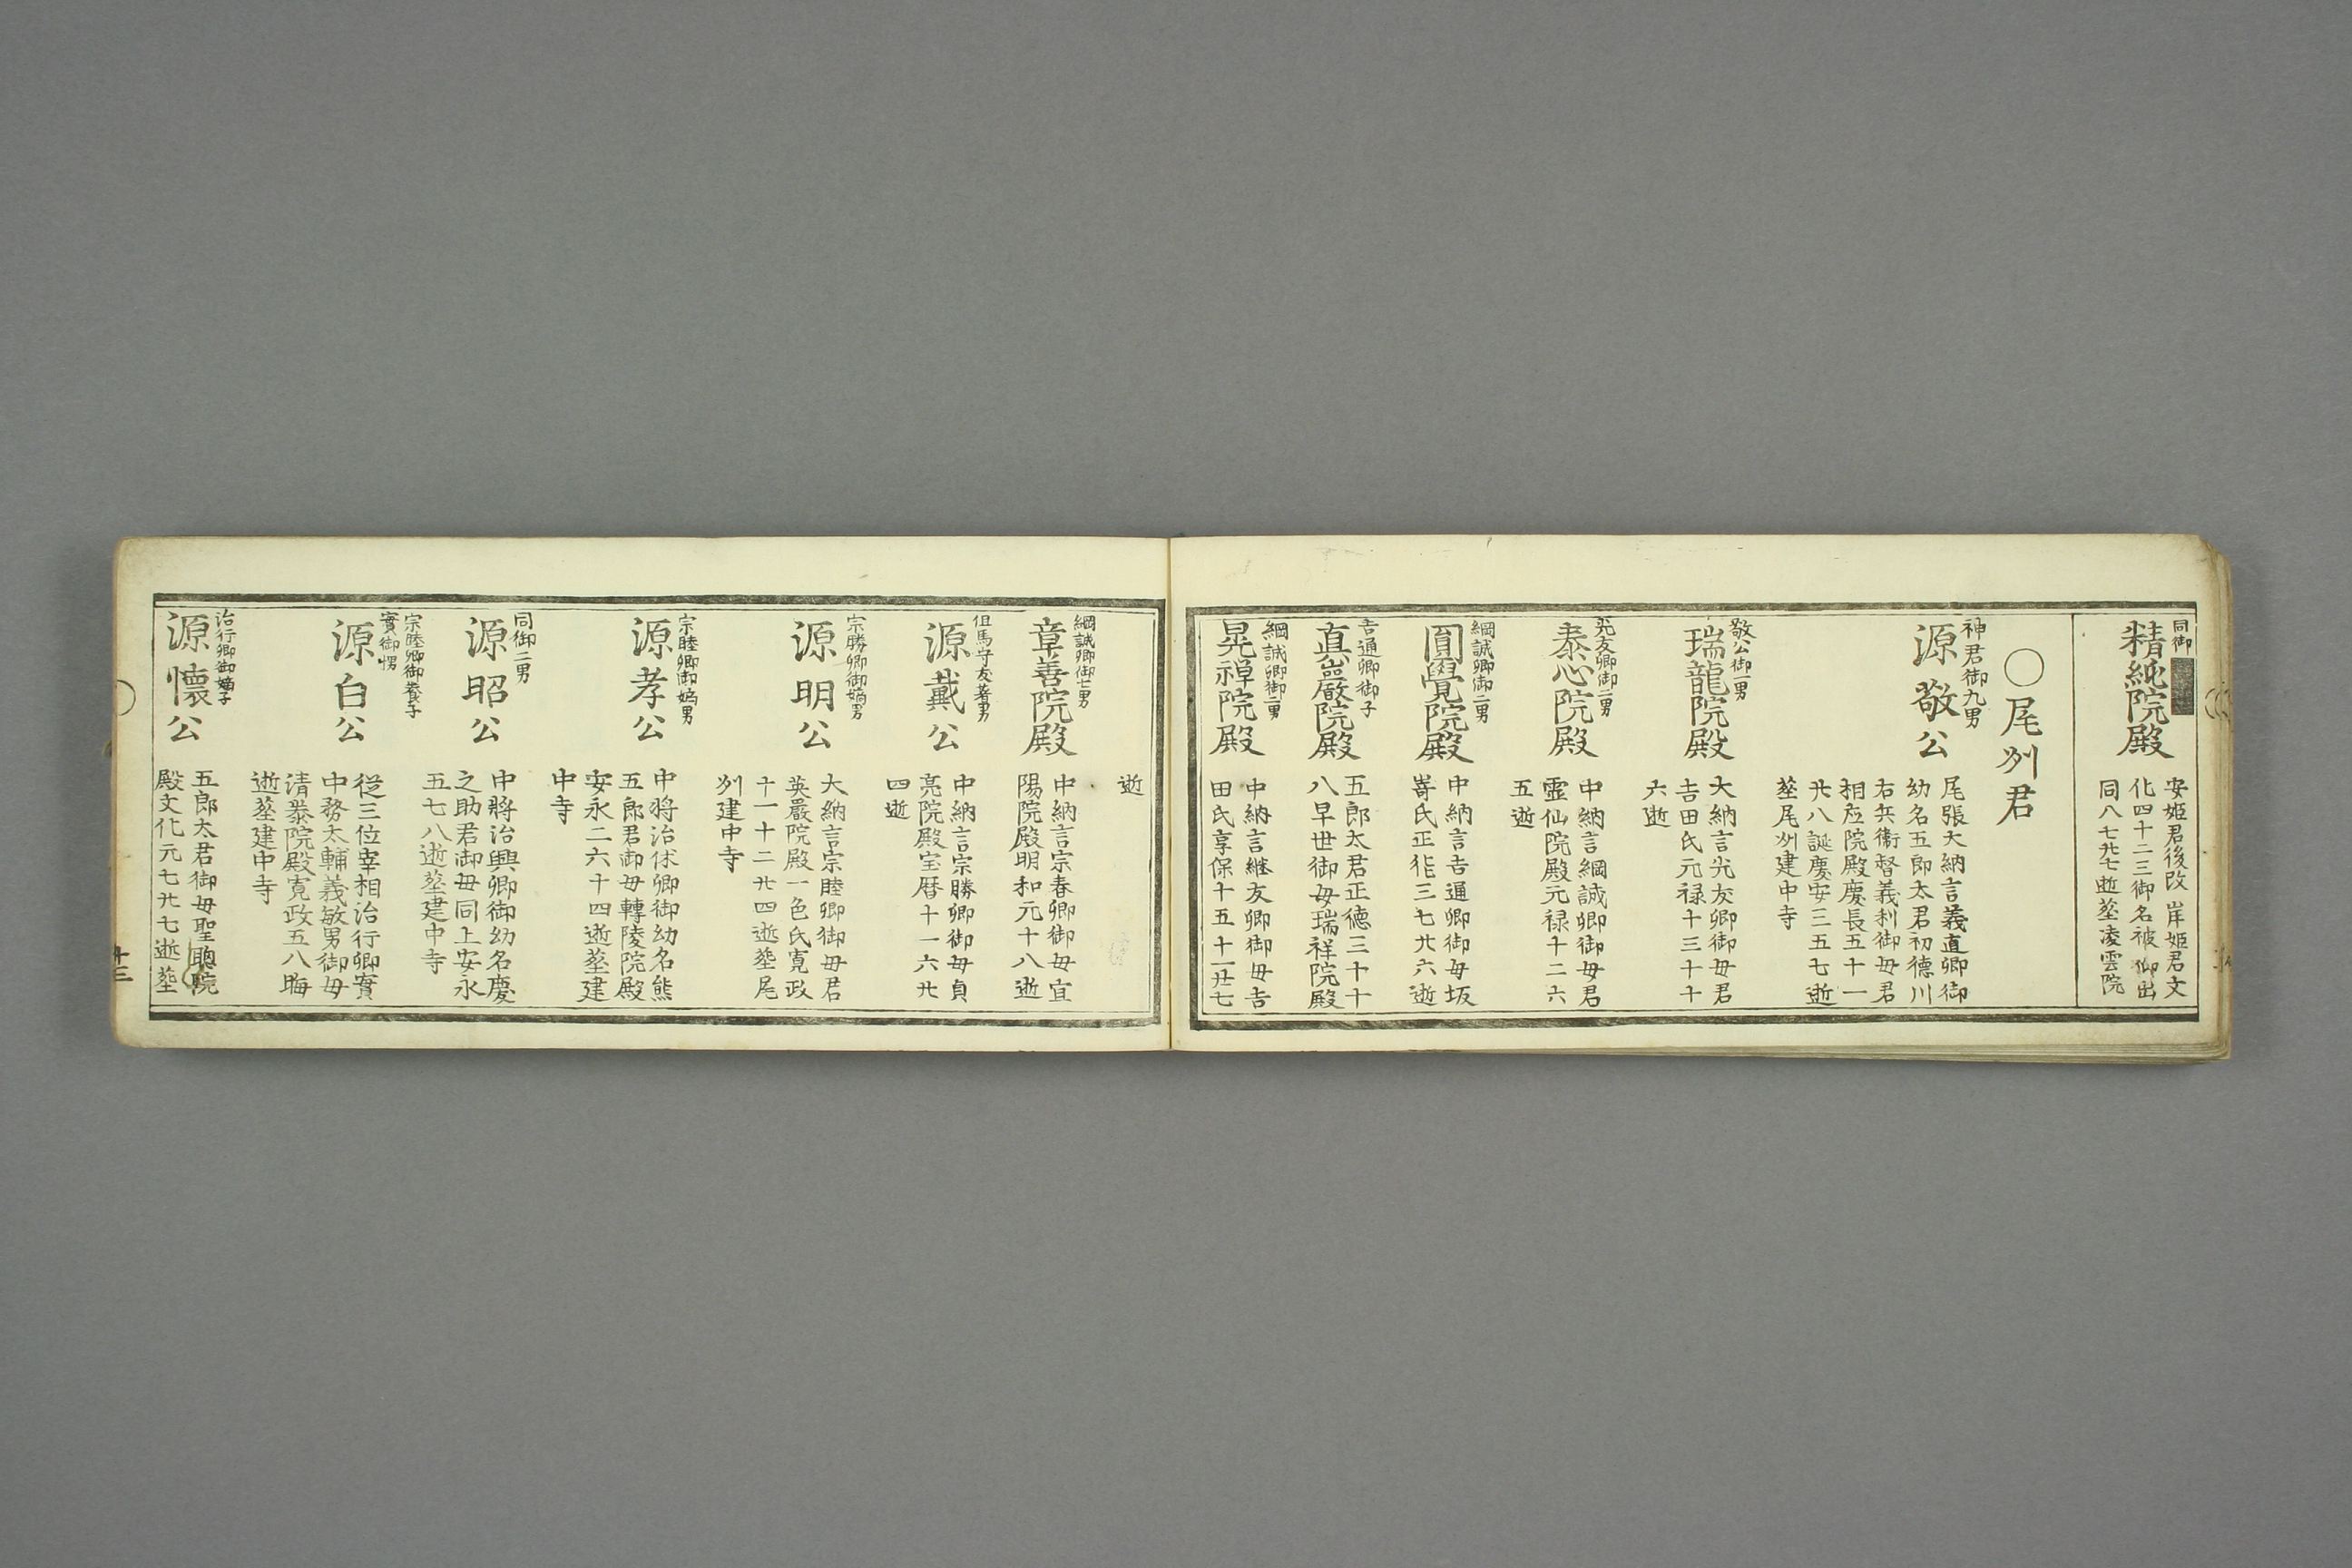 同御
精純院殿
安姫君後改岸姫君文
化四十二三御名被仰出
同八七廾七逝葬凌雲院
○尾州君
神君御九男
源敬公
尾張大納言義直卿御
幼名五郎太君初徳川
右兵衛督義利御母君
相応院殿慶長五十一
廾八誕慶安三五七逝
葬尾州建中寺
敬公御一男
瑞龍院殿
大納言光友卿御母君
吉田氏元禄十三十十
六逝
光友卿御二男
泰心院殿
中納言綱誠卿御母君
霊仙院殿元禄十二六
五逝
綱誠卿御二男
圓覺院殿
中納言吉通卿御母坂
嵜氏正徳三七廾六逝
吉通卿御子
真巌院殿
五郎太君正徳三十十
八早世御母瑞祥院殿
綱誠卿御二男
晃禅院殿
中納言継友卿御母吉
田氏享保十五十一廾七
逝
綱誠卿御七男
章善院殿
中納言宗春卿御母宣
陽院殿明和元十八逝
但馬守友著男
源戴公
中納言宗勝卿御母貞
亮院殿宝暦十一六廾
四逝
宗勝卿御嫡男
源明公
大納言宗睦卿御母君
英厳院殿一色氏寛政
十一十二廾四逝葬尾
州建中寺
宗睦卿御嫡男
源孝公
中将治休卿御幼名熊
五郎君御母轉陵院殿
安永二六十四逝葬建
中寺
同御二男
源昭公
中將治興卿御幼名慶
之助君御母同上安永
五七八逝葬建中寺
宗睦卿御養子
實御甥
源白公
従三位宰相治行卿實
中務太輔義敏男御母
清泰院殿寛政五八晦
逝葬建中寺
治行卿御嫡子
源懐公
五郎太君御母聖聰院
殿文化元七廾七逝葬
十三